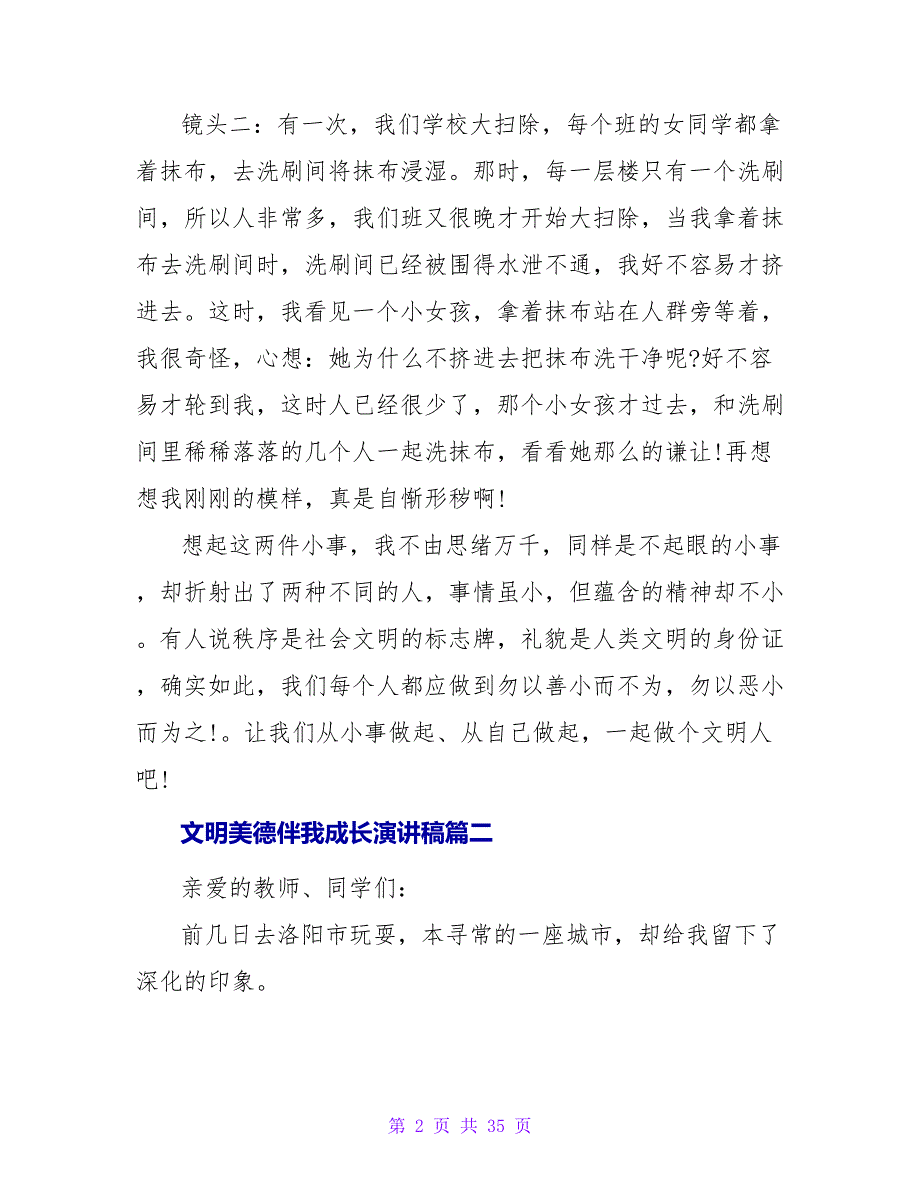 镜头二：有一次，我们学校大扫除，每个班的女同学都拿
着抹布，去洗刷间将抹布浸湿。那时，每一层楼只有一个洗刷
间，所以人非常多，我们班又很晚才开始大扫除，当我拿着抹
布去洗刷间时，洗刷间已经被围得水泄不通，我好不容易才挤
进去。这时，我看见一个小女孩，拿着抹布站在人群旁等着，
我很奇怪，心想：她为什么不挤进去把抹布洗干净呢?好不容
易才轮到我，这时人已经很少了，那个小女孩才过去，和洗刷
间里稀稀落落的几个人一起洗抹布，看看她那么的谦让!再想
想我刚刚的模样，真是自惭形秽啊!
想起这两件小事，我不由思绪万千，同样是不起眼的小事
，却折射出了两种不同的人，事情虽小，但蕴含的精神却不小
。有人说秩序是社会文明的标志牌，礼貌是人类文明的身份证
，确实如此，我们每个人都应做到勿以善小而不为，勿以恶小
而为之!。让我们从小事做起、从自己做起，一起做个文明人
吧!
文明美德伴我成长演讲稿篇二
亲爱的教师、同学们：
前几日去洛阳市玩耍，本寻常的一座城市，却给我留下了
深化的印象。
第 2 页 共 35 页